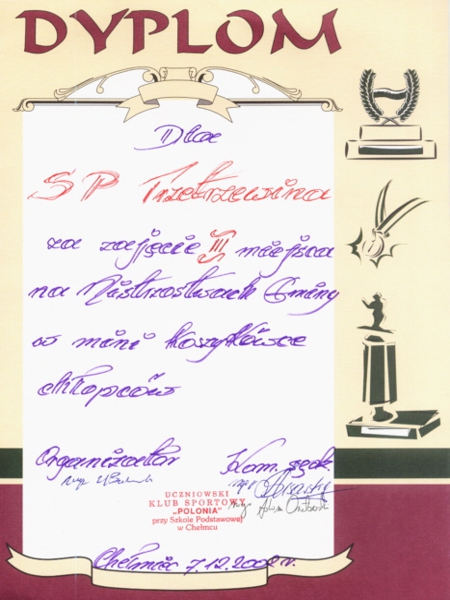 DYPLOM
Dla
SP Trzetrzewina
za zajęcie III miejsca
na Mistrzostwach Gminy
w mini koszykówce
chłopców
Organizator
Kom. sędz.
mgr
mgr
mgr
UCZNIOWSKI
KLUB SPORTOWY
„POLONIA"
przy Szkole Podstawowej
w Chełmcu
Chełmiec 7.12.2002 r.